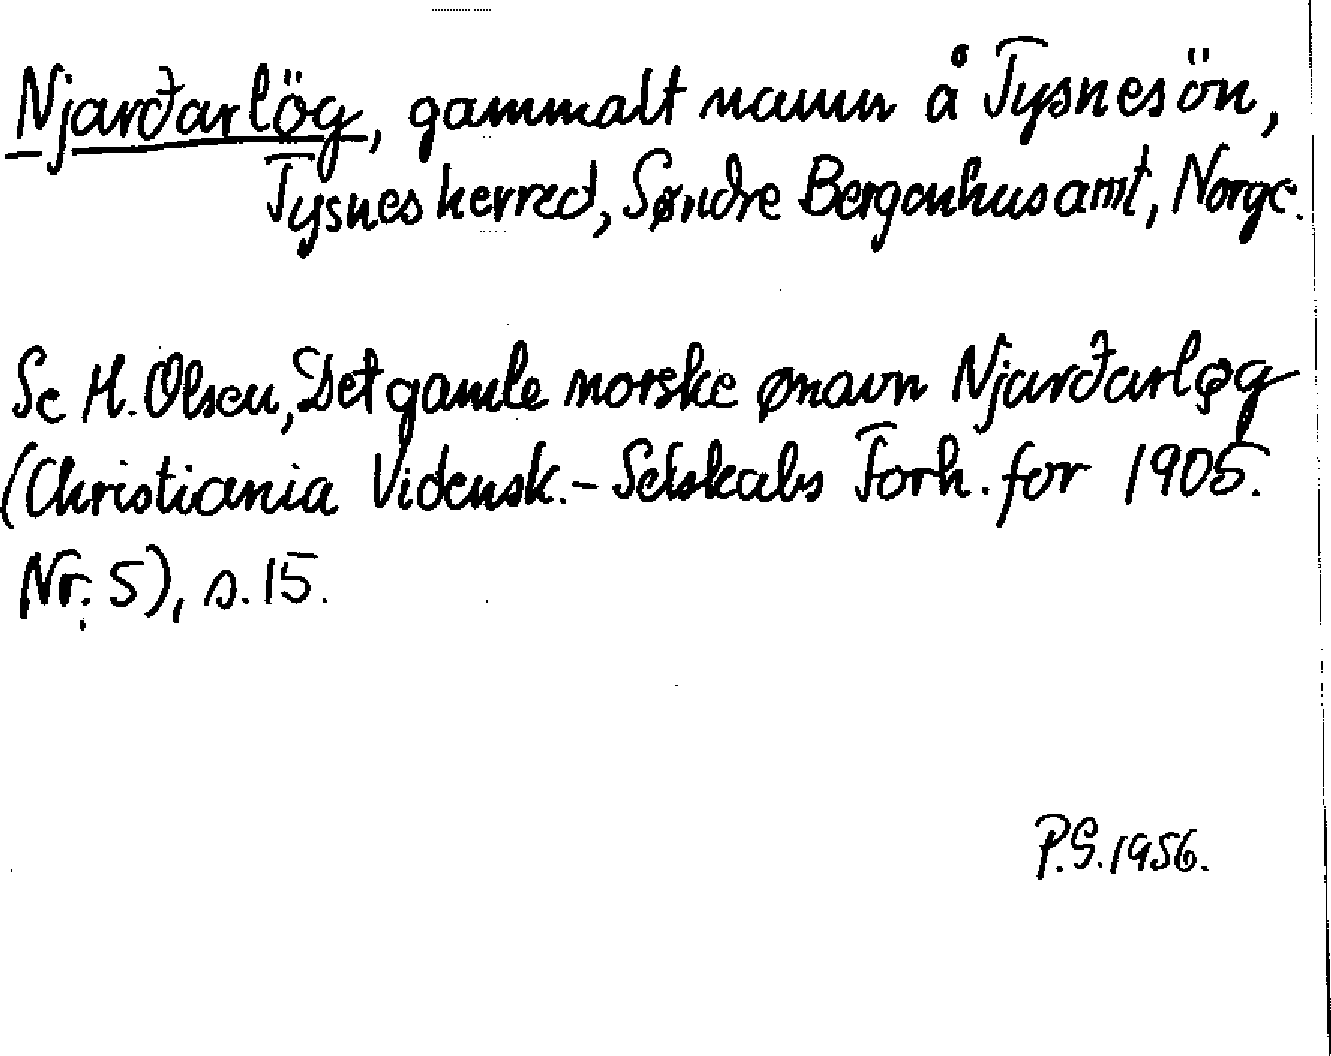 Njarðarlög, gammalt namn å Tysnesön,
Tysnes herred, Søndre Bergenhus amt, Norge.
Se M. Olsen, Det gamle norske ønavn Njarðarlǫg
(Christiania Vidensk.-Selskabs Forh. for 1905.
Nr. 5), s. 15.
P.S. 1956.